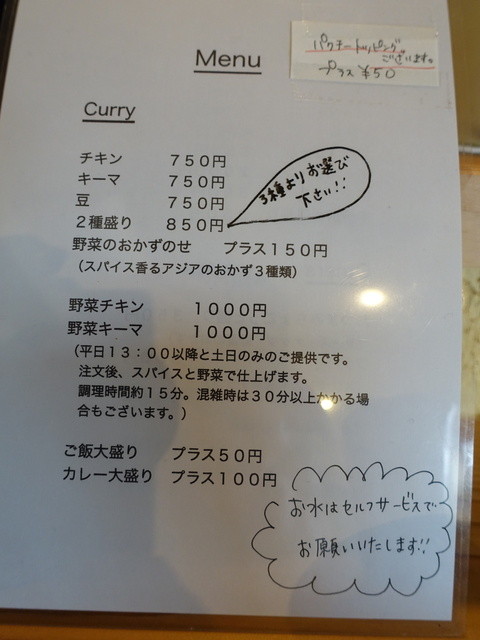 パクチートッピング
ございます。
プラス ¥50
Menu
Curry
チキン ７５０円
キーマ ７５０円
豆 ７５０円
２種盛り ８５０円
3種よりお選び
下さい!!
野菜のおかずのせ プラス１５０円
（スパイス香るアジアのおかず３種類）
野菜チキン １０００円
野菜キーマ １０００円
（平日１３：００以降と土日のみのご提供です。
注文後、スパイスと野菜で仕上げます。
調理時間約１５分。混雑時は３０分以上かかる場
合もございます。）
ご飯大盛り プラス５０円
カレー大盛り プラス１００円
お水はセルフサービスで
お願いいたします!!